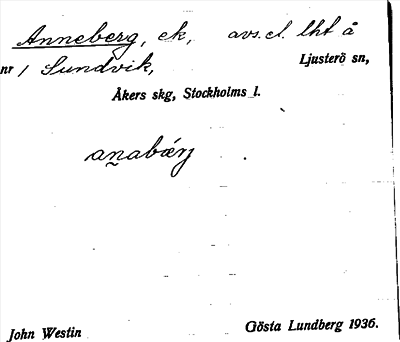 Anneberg, ek, avs.el. lht å
nr 1 Sundvik, Ljusterö sn,
Åkers skg, Stockholms l.
anabærj
John Westin Gösta Lundberg 1936.